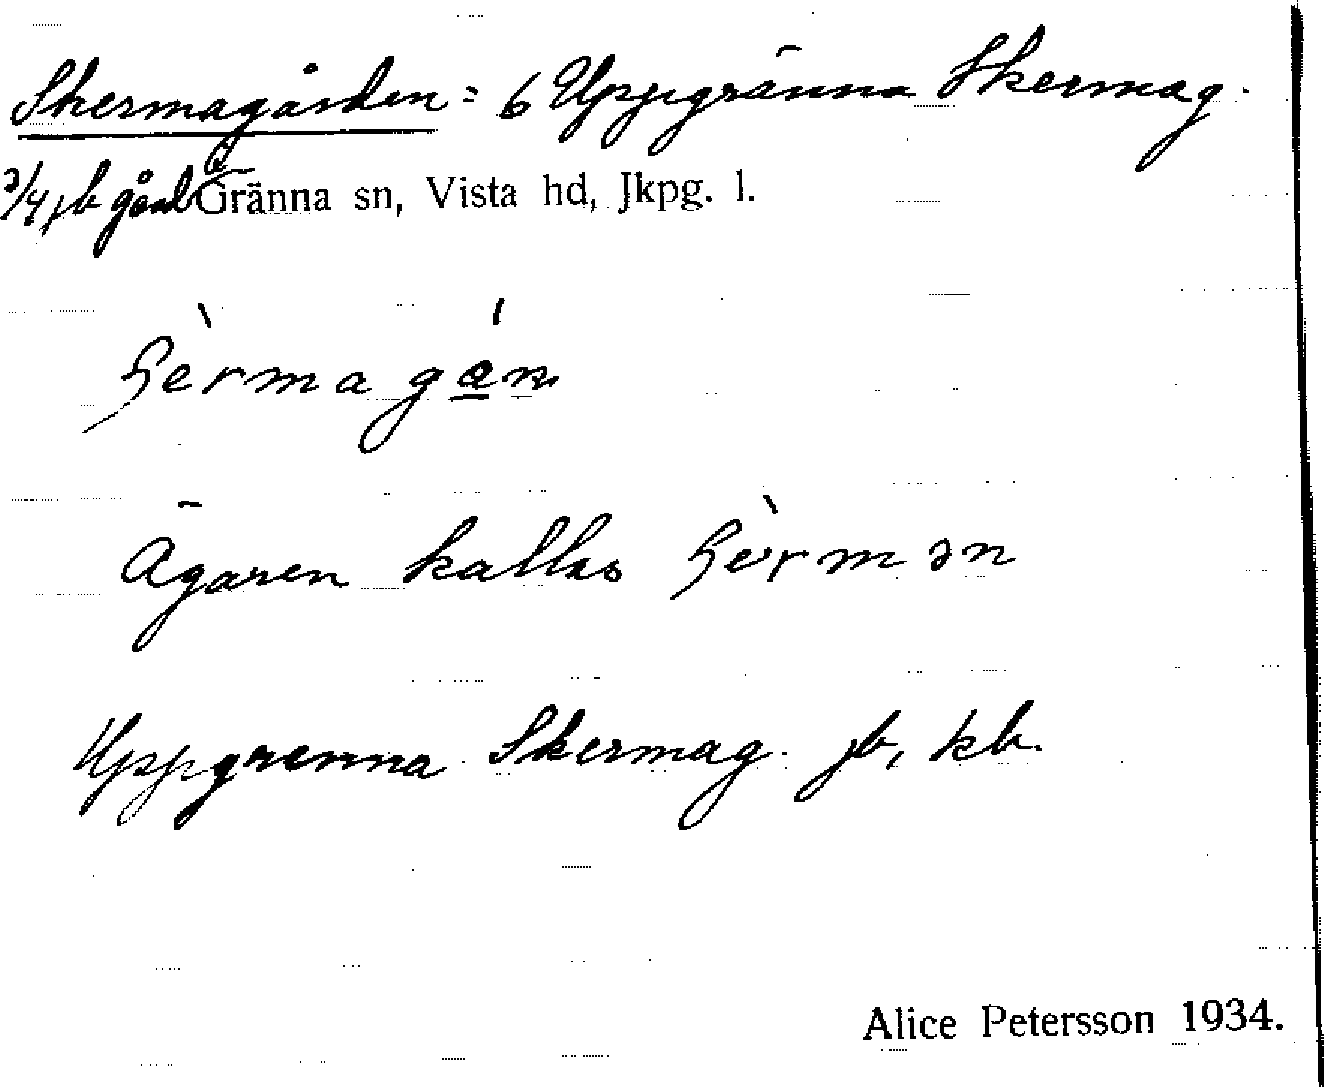 Skermagården = 6 Uppgränna Skermag.
3/4 jb gård Gränna sn, Vista hd, Jkpg. l.
Ägaren kallas
Uppgrenna Skermag. jb, kb.
Alice Petersson 1934.